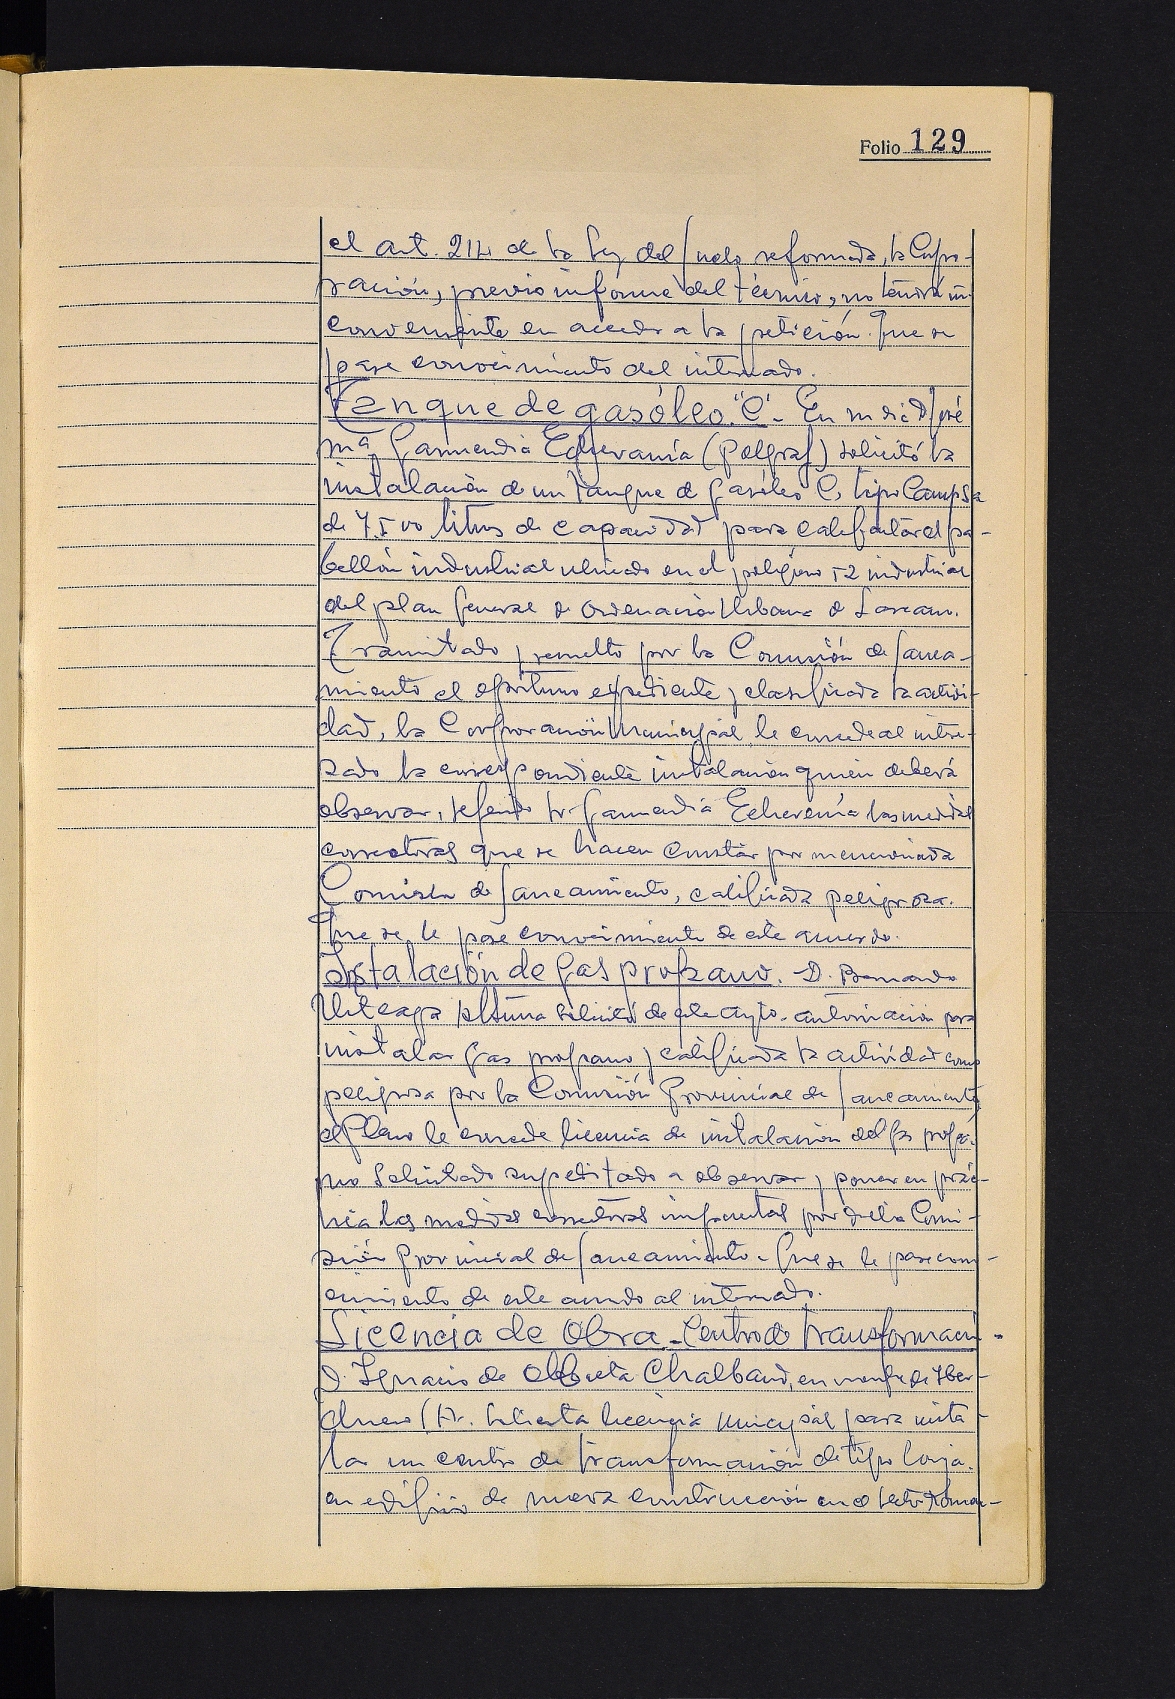 Folio 129
el art. 214 de la Ley del Suelo reformada, la Corpo-
ración, previo informe del técnico, no tendrá in-
conveniente en acceder a la petición. Que se
pase conocimiento del interesado.
Tanque de gasóleo "C".- En su día D. José
Mª Garmendia Echevarría (Polgraf) solicitó la
instalación de un tanque de gasóleo C, tipo Campsa
de 7.500 litros de capacidad para calefactar el pa-
bellón industrial ubicado en el polígono 52 industrial
del plan General de Ordenación Urbana de Lazcano.
Tramitado y resuelto por la Comisión de Sanea-
miento el oportuno expediente y clasificada la activi-
dad, la Corporación Municipal le concede al intere-
sado la correspondiente instalación quien deberá
observar, referido Sr. Garmendia Echeverría las medidas
correctoras que se hacen constar por mencionada
Comisión de Saneamiento, calificada peligrosa.
Que se le pase conocimiento de este acuerdo.
Instalación de Gas propano. D. Bernardo
Urteaga Altuna solicitó de este Ayto. autorización para
instalar gas propano y calificada la actividad como
peligrosa por la Comisión Provincial de Saneamiento
el Pleno le concede licencia de instalación del gas propa-
no solicitado supeditado a observar y poner en prác-
tica las medidas correctoras impuestas por dicha Comi-
sión Provincial de Saneamiento. Que se le pase cono-
cimiento de este acuerdo al interesado.
Licencia de Obra.-Centro de transformaci-
D. Ignacio de Obieta Chalbaud, en nombre de Iber-
duero S.A. solicita licencia municipal para insta-
lar un centro de transformación de tipo lonja.
en edificio de nueva construcción en el